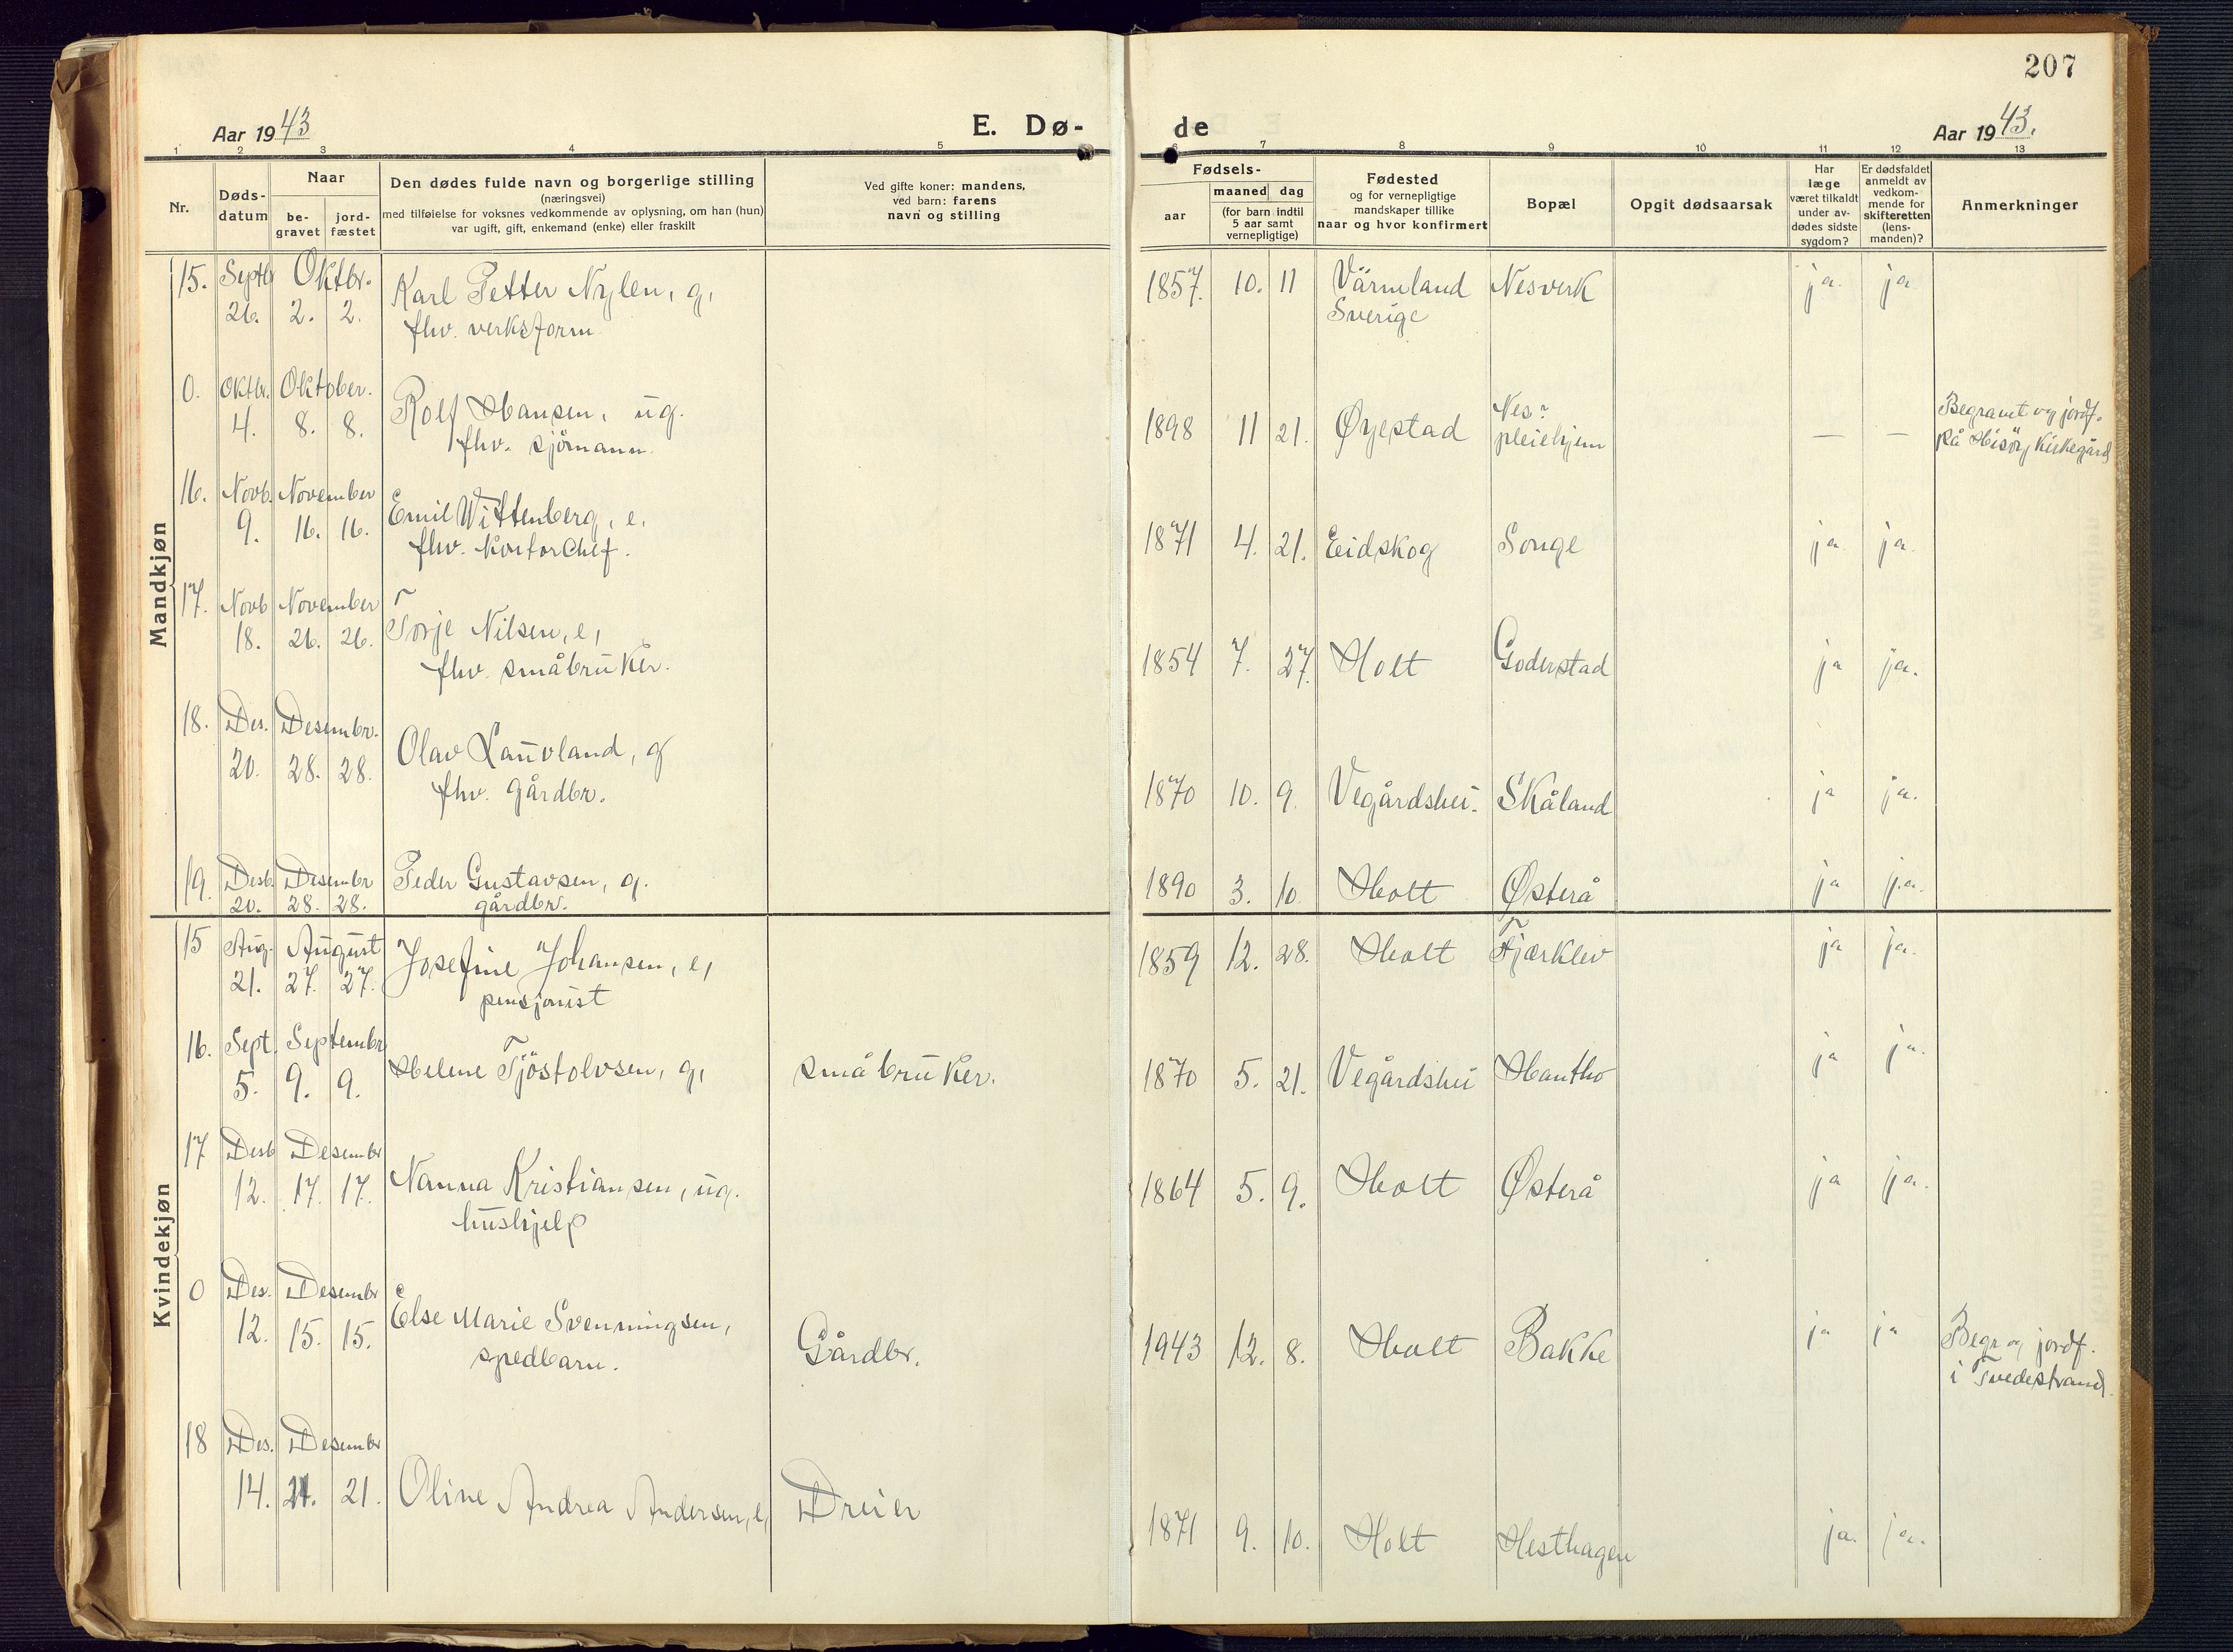 207
Aar 1943
E. Dø-
de
Aar 1943.
1 2 3 4 5 6 7 8 9 10 11 12 13
Nr.
Døds-
datum
Naar
be-
gravet
jord-
fæstet
Den dødes fulde navn og borgerlige stilling
(næringsvei)
med tilføielse for voksnes vedkommende av oplysning, om han (hun)
var ugift, gift, enkemand (enke) eller fraskilt
Ved gifte koner: mandens,
ved barn: farens
navn og stilling
Fødsels-
aar
maaned dag
(for barn indtil
5 aar samt
vernepligtige)
Fødested
og for vernepligtige
mandskaper tillike
naar og hvor konfirmert
Bopæl
Opgit dødsaarsak
Har
læge
været tilkaldt
under av-
dødes sidste
sygdom?
Er dødsfaldet
anmeldt av
vedkom-
mende for
skifteretten
(lens-
manden)?
Anmerkninger
Mandkjøn
15. Septb. Oktbr. Karl Petter Nylen, g, 1857. 10. 11 Värmland Nesverk ja. ja
26. 2. 2. fhv. verksform Sverige
0. Oktbr. Oktober. Rolf Hansen, ug. 1898 11 21. Øyestad Nes- — — Begravet og jordf.
4. 8. 8. fhv. sjömann. pleiehjem på Hisöy Kirkegård
16. Novb. November Emil Wittenberg, e, 1871 4. 21. Eidskog Songe ja ja.
9. 16. 16. fhv. Kontorchef.
17. Novb November Torje Nilsen, e, 1854 7. 27. Holt Goderstad ja ja.
18. 26. 26. fhv. småbruker.
18. Des. Desembr. Olav Lauvland, g 1870 10. 9. Vegårdshei. Skåland ja ja.
20. 28. 28. fhv. gårdbr.
19. Desb. Desembr Peder Gustavsen, g. 1890 3. 10 Holt Østerå ja ja.
20. 28. 28. gårdbr.
Kvindekjøn
15 Aug. August Josefine Johansen, e, 1859 12. 28. Holt Fjærklev ja ja.
21. 27. 27. pensjonist
16. Sept. Septembr Helene Tjöstolvsen, g, småbruker. 1870 5. 21. Vegårdshei Hantho ja ja.
5. 9. 9.
17 Desb Desembr Nanna Kristiansen, ug. 1864 5. 9. Holt Østerå ja ja.
12. 17. 17. hushjelp
0 Des. Desembr Else Marie Svenningsen, Gårdbr. 1943 12. 8. Holt Bakke ja ja Begr og jordf.
12. 15. 15. spedbarn. i Tvedestrand.
18 Des. Desembr
14. 21. 21. Oline Andrea Andersen, e, Dreier 1871 9. 10. Holt Hesthagen ja. ja.